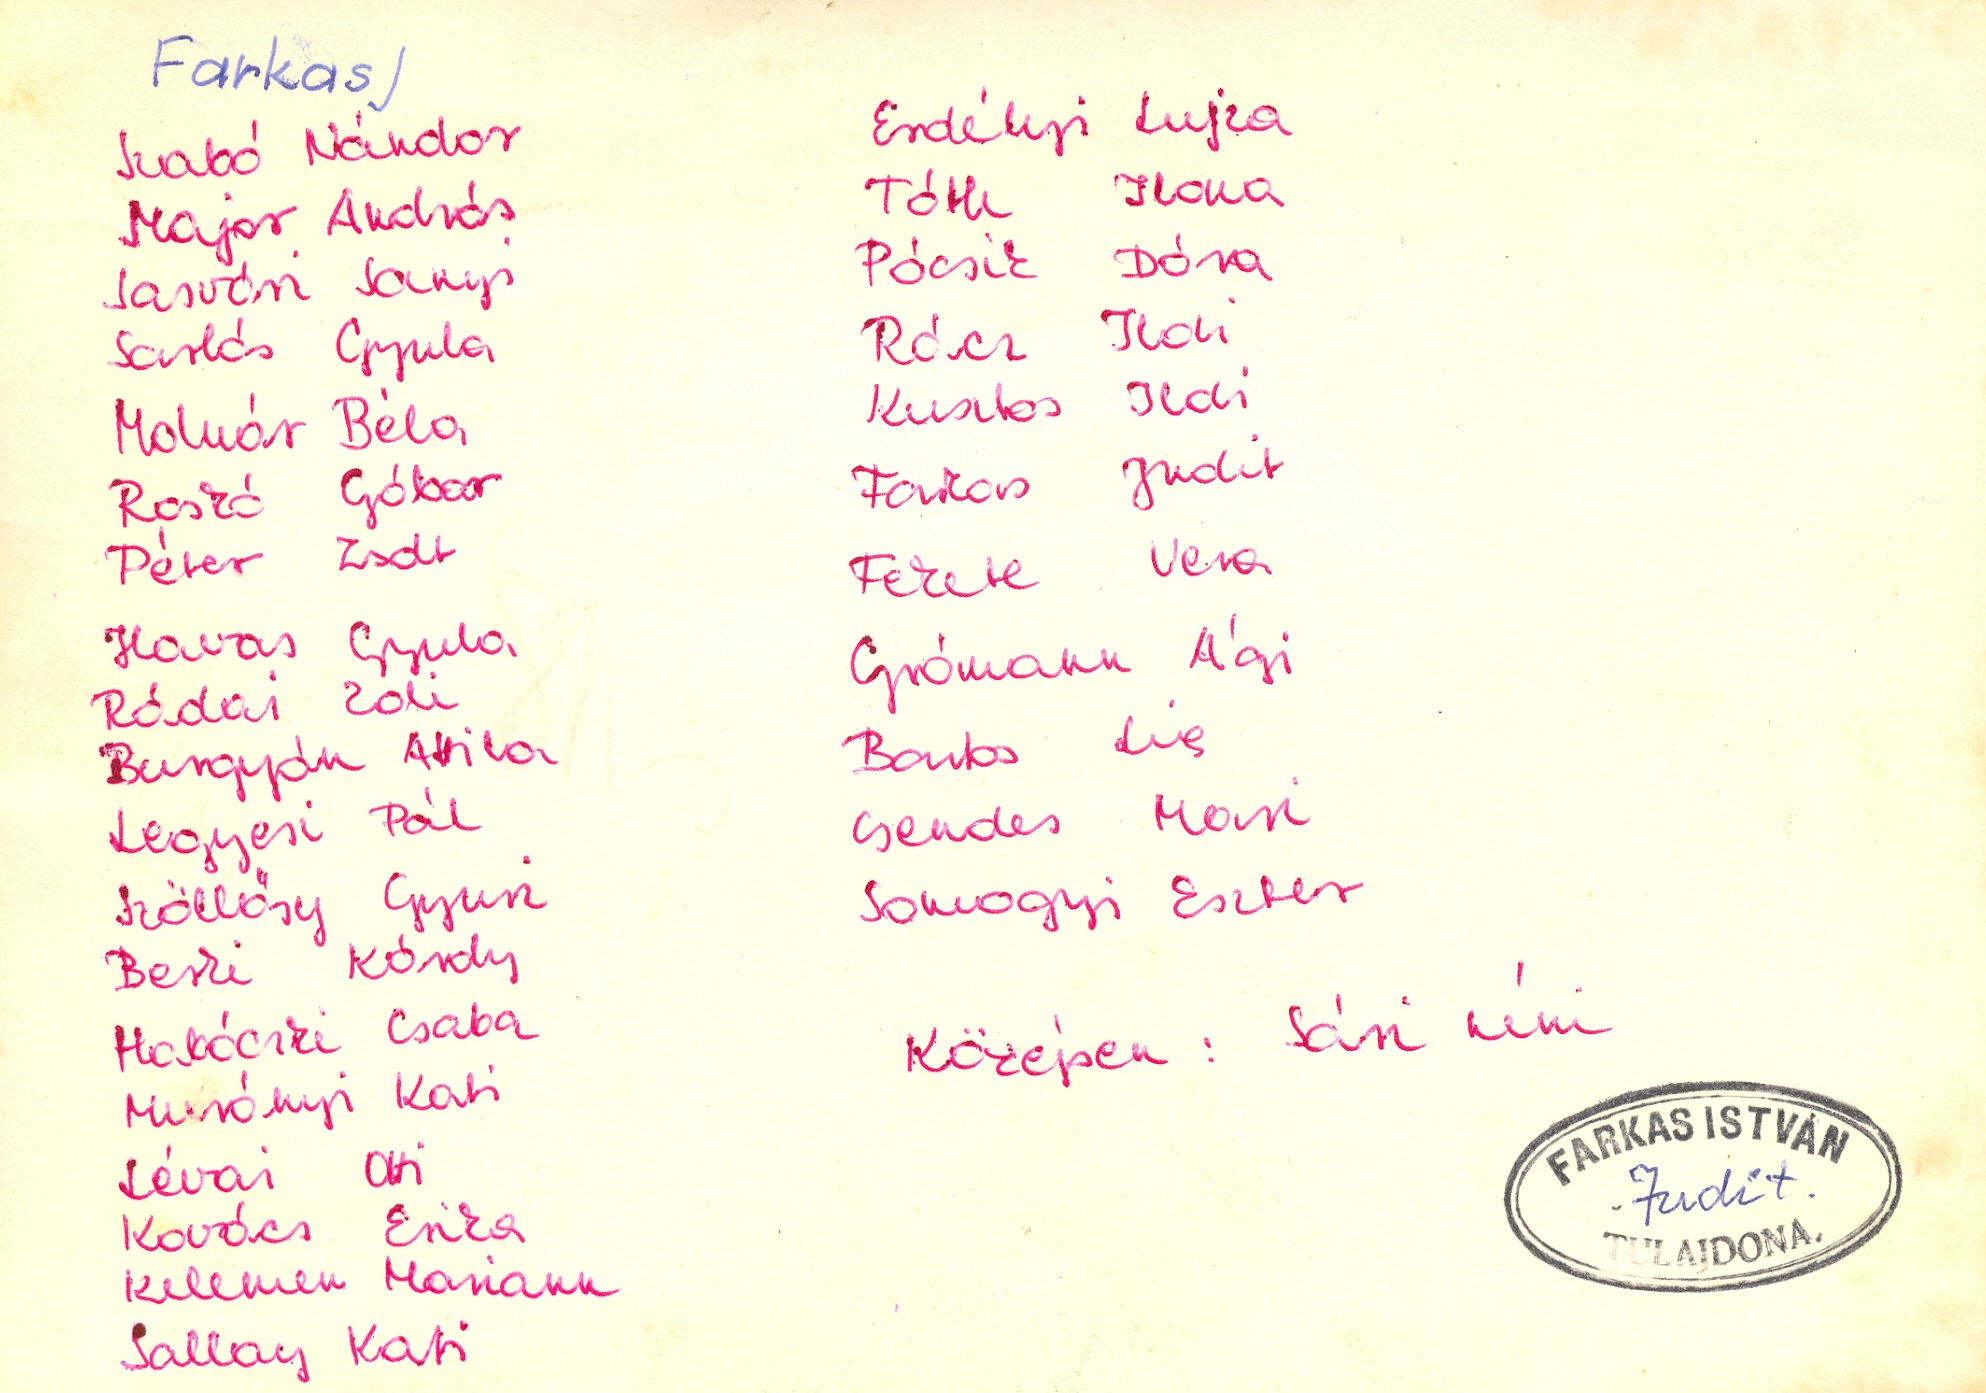 Farkas J
Szabó Nándor
Major András
Sasvári Sanyi
Sarlós Gyula
Molnár Béla
Roskó Gábor
Péter Zsolt
Havas Gyula
Rádai Zoli
Burgyán Attila
Legyesi Pál
Szöllősy Gyuri
Beski Kárdy
Makócski Csaba
Murányi Kati
Lévai Oti
Kovács Erika
Kelemen Mariann
Sallay Kati
Erdélyi Lujza
Tóth Ilona
Pócsik Dóra
Rácz Ildi
Kusztos Ildi
Farkas Judit
Fekete Vera
Grómann Ági
Bartos Lia
Csendes Mari
Somogyi Eszter
Középen : Sári néni
FARKAS ISTVÁN
Judit.
TULAJDONA.